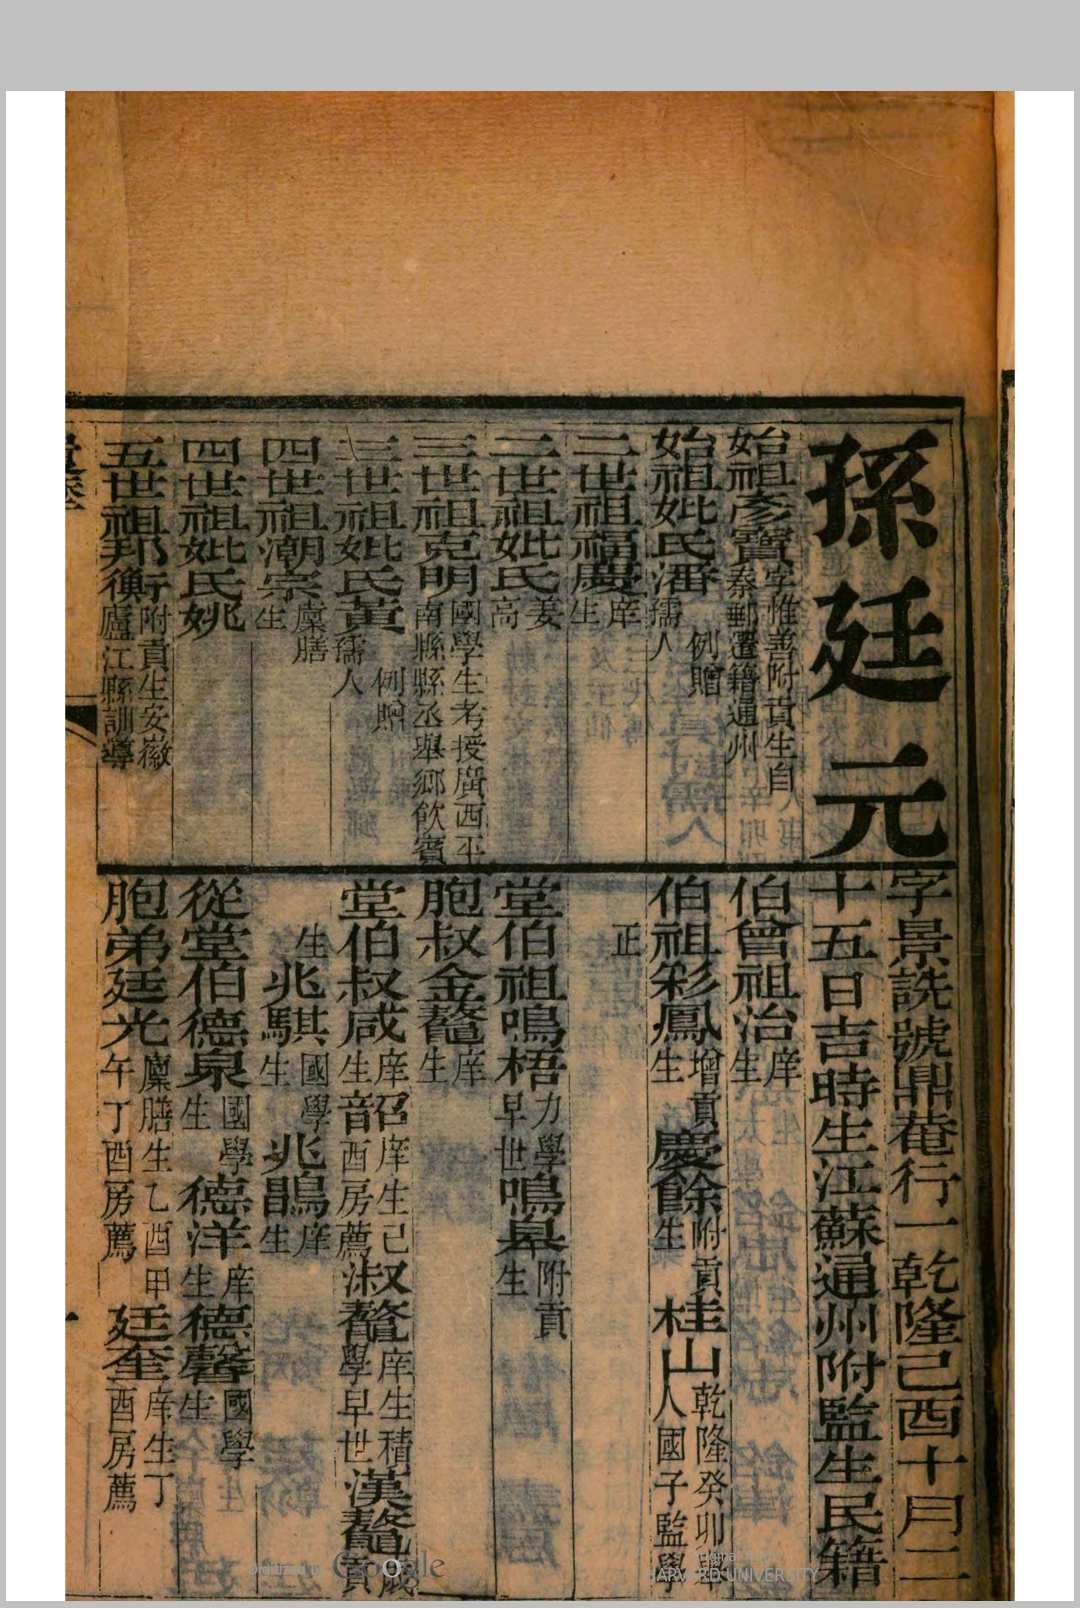 孫廷元
字景詵號鼎菴行一乾隆己酉十月二
十五日吉時生江蘇通州附監生民籍
始祖彥寶字惟善附貢生自泰郵遷籍通州
始祖妣氏潘例贈孺人
二世祖福慶庠生
二世祖妣氏姜高
三世祖克明國學生考授廣西平南縣縣丞舉鄉飲賓
三世祖妣氏黃例贈孺人
四世祖潮宗廩膳生
四世祖妣氏姚
五世祖邦衡附貢生安徽廬江縣訓導
伯曾祖治庠生
伯祖彩鳳增貢生慶餘附貢生桂山乾隆癸卯舉人國子監學
正
堂伯祖鳴梧力學早世鳴皋附貢生
胞叔金鼇庠生
堂伯叔咸庠生韶庠生己酉房薦淑鼇庠生積學早世漢鼇歲貢
生兆騏國學生兆鵾庠生
從堂伯德泉國學生德洋庠生德馨國學生
胞弟廷光廩膳生乙酉甲午丁酉房薦廷奎庠生丁酉房薦
Google
HARVARD UNIVERSITY